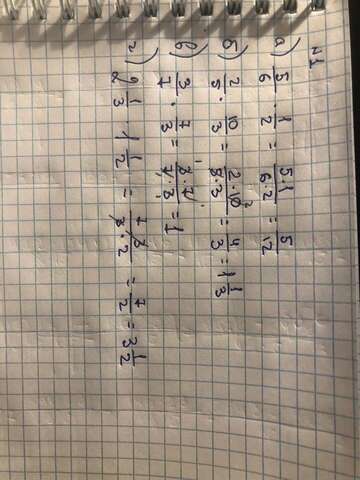 №1
а) 5/6 · 1/2 = 5·1/6·2 = 5/12
б) 2/5 · 10/3 = 2·10 2/5·3 = 4/3 = 1 1/3
в) 3/7 · 7/3 = 3·7/7·3 = 1
г) 2 1/3 · 1 1/2 = 7·3/3·2 = 7/2 = 3 1/2